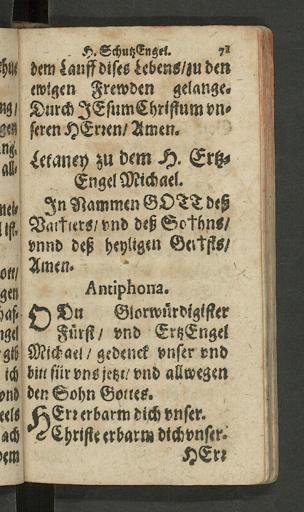 H. SchutzEngel. 71
dem Lauff dises Lebens/ zu den
ewigen Frewden gelange.
Durch JEsum Christum vn-
seren HErren/ Amen.
Letaney zu dem H. Ertz-
Engel Michael.
In Nammen GOTT deß
Vat†ters/ vnd deß So†hns/
vnnd deß heyligen Gei†sts/
Amen.
Antiphona.
O Du Glorwürdigister
Fürst/ vnd ErtzEngel
Michael/ gedenck vnser vnd
bitt für vns jetzt/ vnd allwegen
den Sohn Gottes.
HErr erbarm dich vnser.
Christe erbarm dich vnser.
HErr